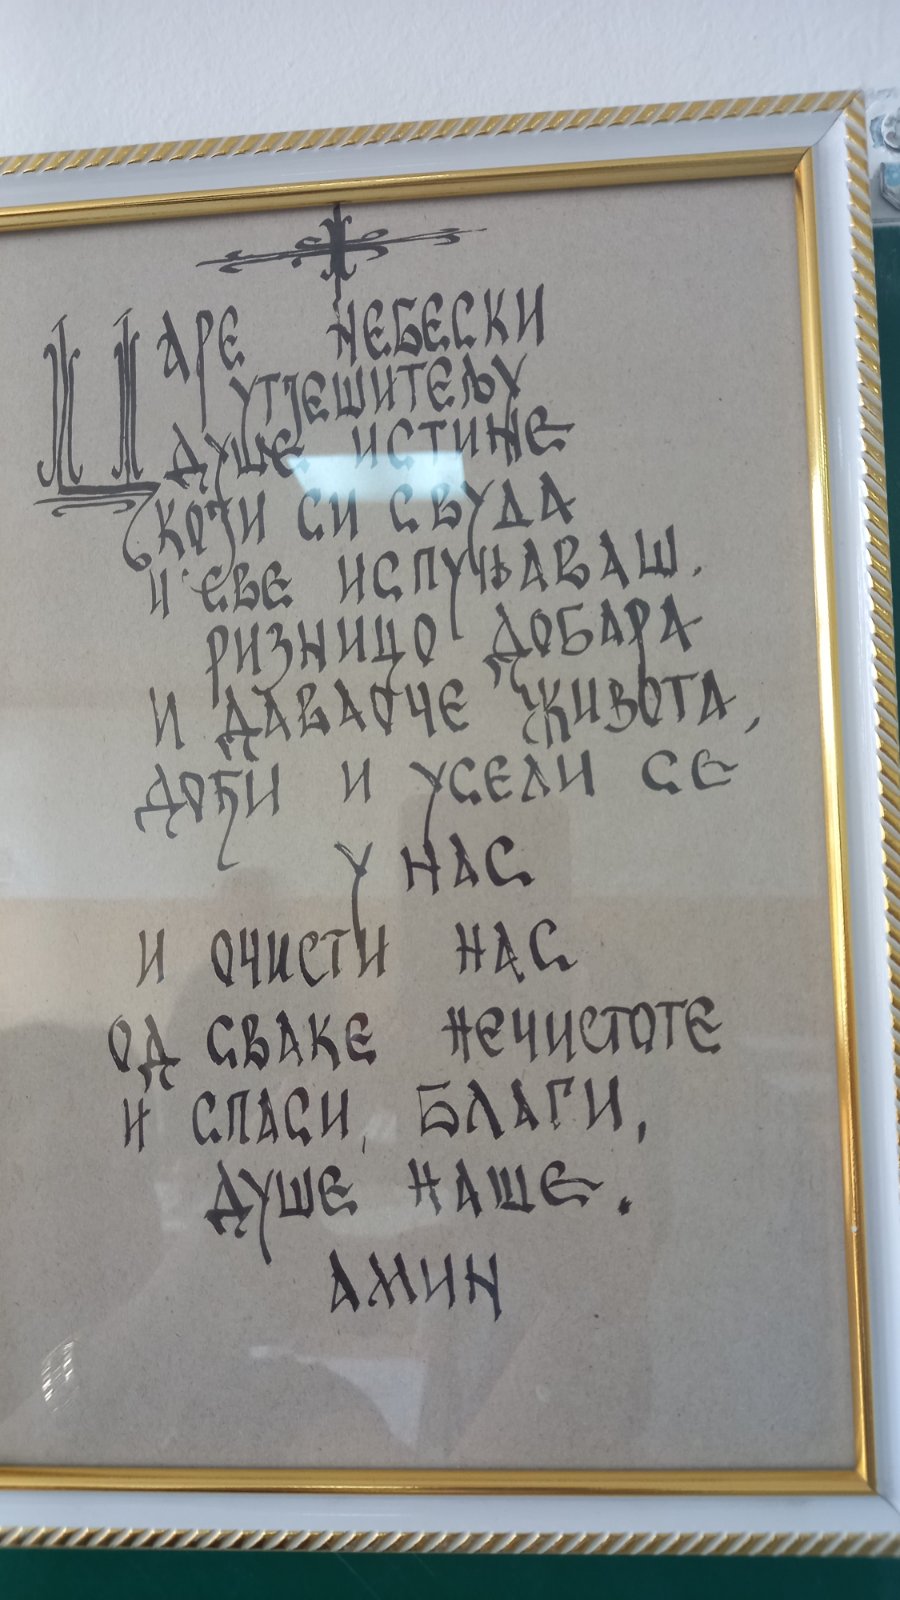 ЦАРЕ НЕБЕСКИ
УТЈЕШИТЕЉУ
ДУШЕ ИСТИНЕ
КОЈИ СИ СВУДА
И СВЕ ИСПУЊАВАШ.
РИЗНИЦО ДОБАРА
И ДАВАОЧЕ ЖИВОТА,
ДОЂИ И УСЕЛИ СЕ
У НАС
И ОЧИСТИ НАС
ОД СВАКЕ НЕЧИСТОТЕ
И СПАСИ, БЛАГИ,
ДУШЕ НАШЕ.
АМИН